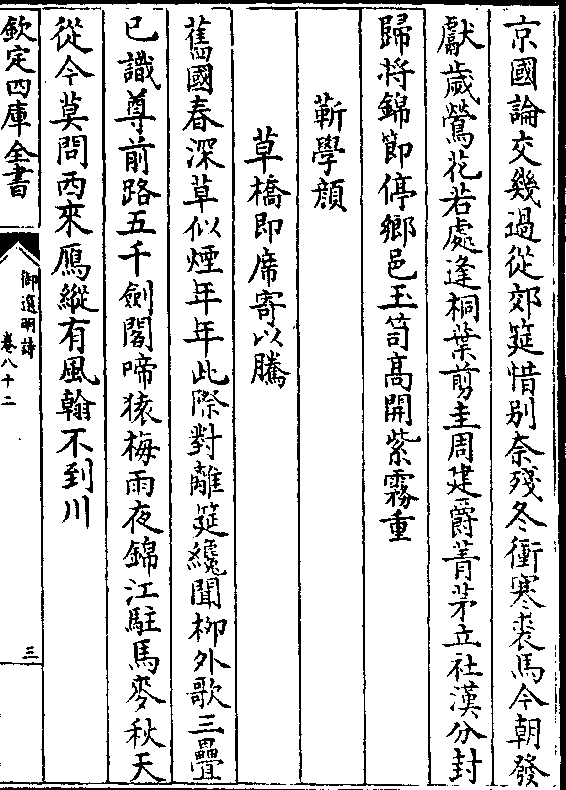 京國論交幾過從郊筵惜别奈殘冬衝寒裘馬今朝發
獻歲鶯花若處逢桐葉剪圭周建爵菁茅立社漢分封
歸將錦節停鄉邑玉笥髙開紫霧重
靳學顔
草橋即席寄以騰
舊國春深草似煙年年此際對離筵纔聞柳外歌三疊
已識尊前路五千劍閣啼猿梅雨夜錦江駐馬麥秋天
從今莫問西來鴈縱有風翰不到川
欽定四庫全書
御選明詩
卷八十二
三